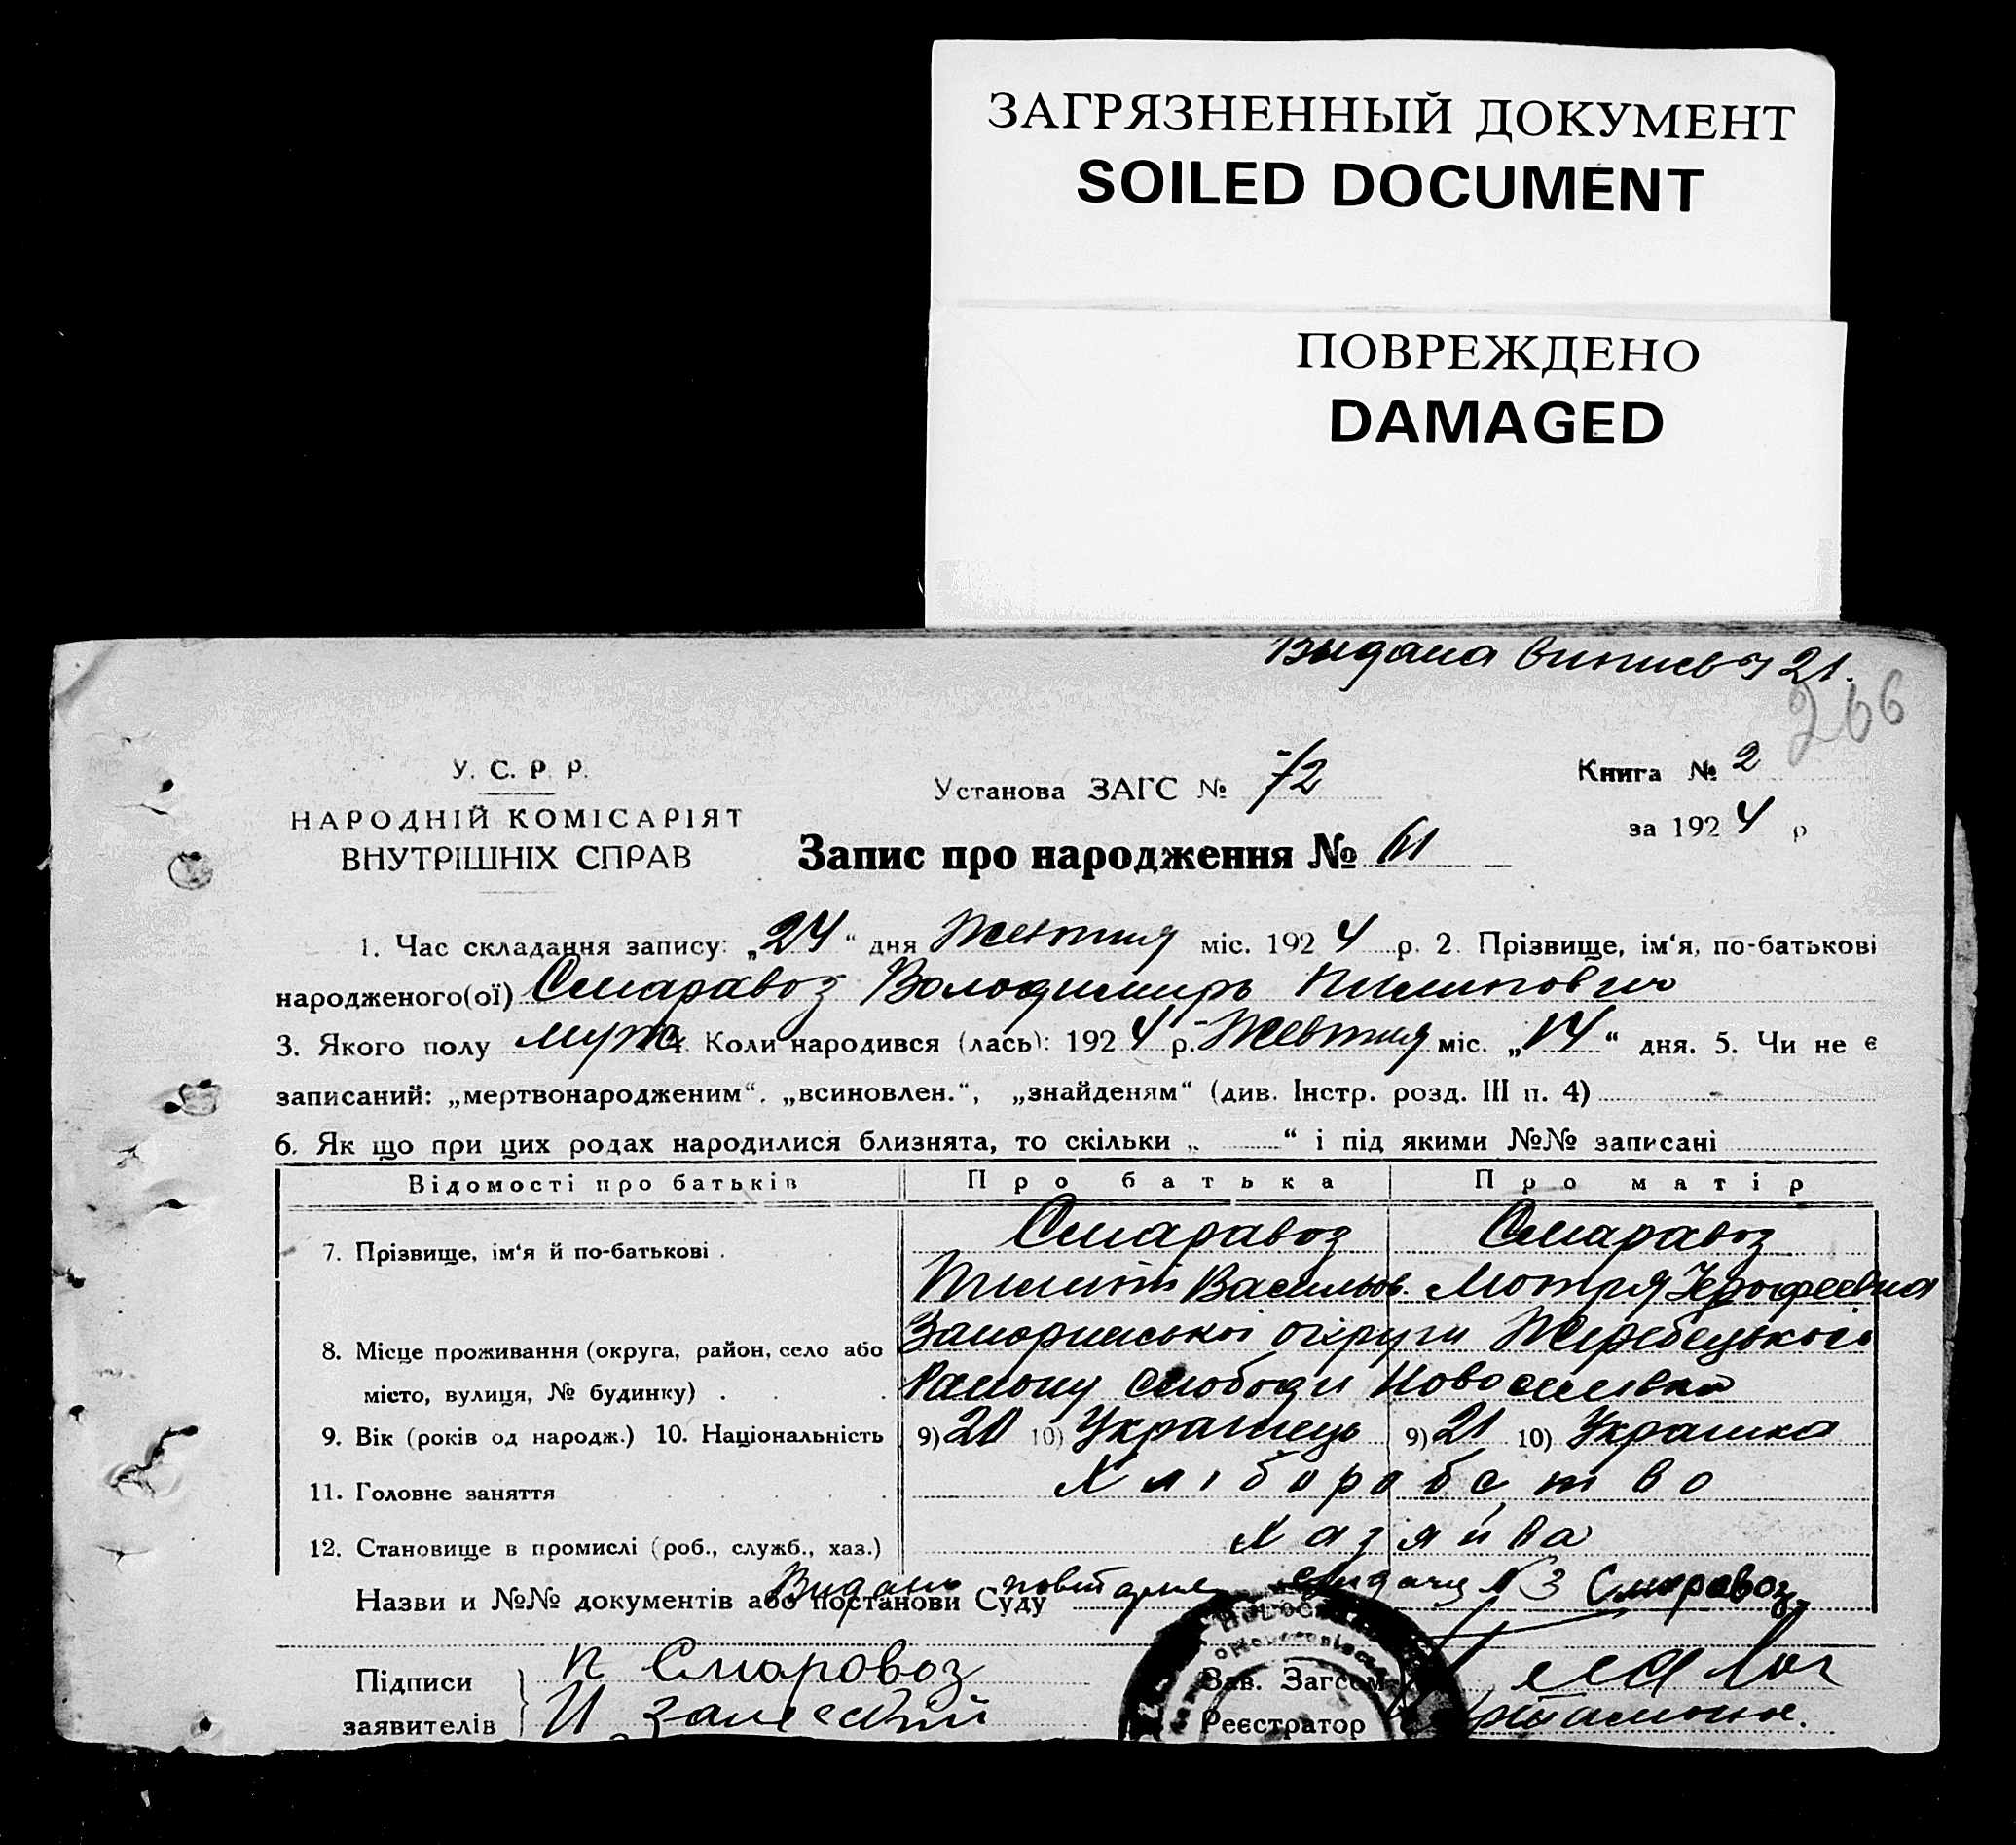 ЗАГРЯЗНЕННЫЙ ДОКУМЕНТ
SOILED DOCUMENT
ПОВРЕЖДЕНО
DAMAGED
Видана випись 21.
266
У. С. Р. Р.
НАРОДНІЙ КОМІСАРІЯТ
ВНУТРІШНІХ СПРАВ
Установа ЗАГС № 72
Книга № 2
за 1924 р
Запис про народження № 61
1. Час складання запису: „24“ дня Жовтня міс. 1924 р. 2. Прізвище, ім‘я, по-батькові
народженого(ої) Смаравоз Володимиръ Пилипович
3. Якого полу муж 4. Коли народився (лась): 1924 р. Жовтня міс. „14“ дня. 5. Чи не є
записаний: „мертвонародженим“, „всиновлен.“, „знайденям“ (див. Інстр. розд. III п. 4) -
6. Як що при цих родах народилися близнята, то скільки „ “ і під якими №№ записані
Відомості про батьків Про батька Про матір
7. Прізвище, ім‘я й по-батькові . Смаравоз Смаравоз
Пилип Васильов. Мотря Єрофеевна
8. Місце проживання (округа, район, село або Запоріжської округи Жеребецького
місто, вулиця, № будинку) . . Району слободи Новоселівка
9. Вік (років од народж.) 10. Національність 9) 20 10) Українець 9) 21 10) Українка
11. Головне заняття Хліборобство
12. Становище в промислі (роб., служб., хаз.) Хазяйва
Назви и №№ документів або постанови Суду Видано повторне № 3 Смаровоз
Підписи заявителів П Смаровоз
И
Зав. Загсом
Реєстратор